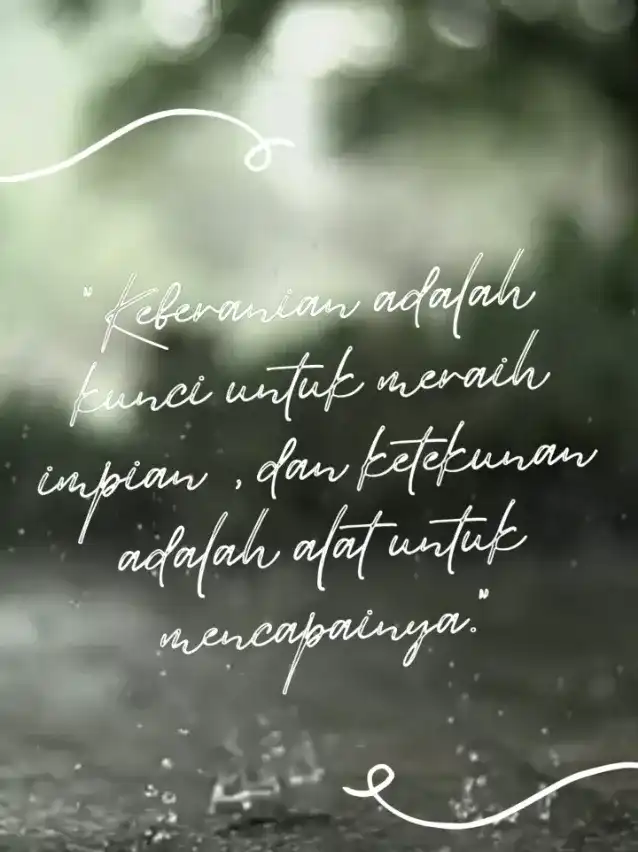 "Keberanian adalah
kunci untuk meraih
impian , dan ketekunan
adalah alat untuk
mencapainya."